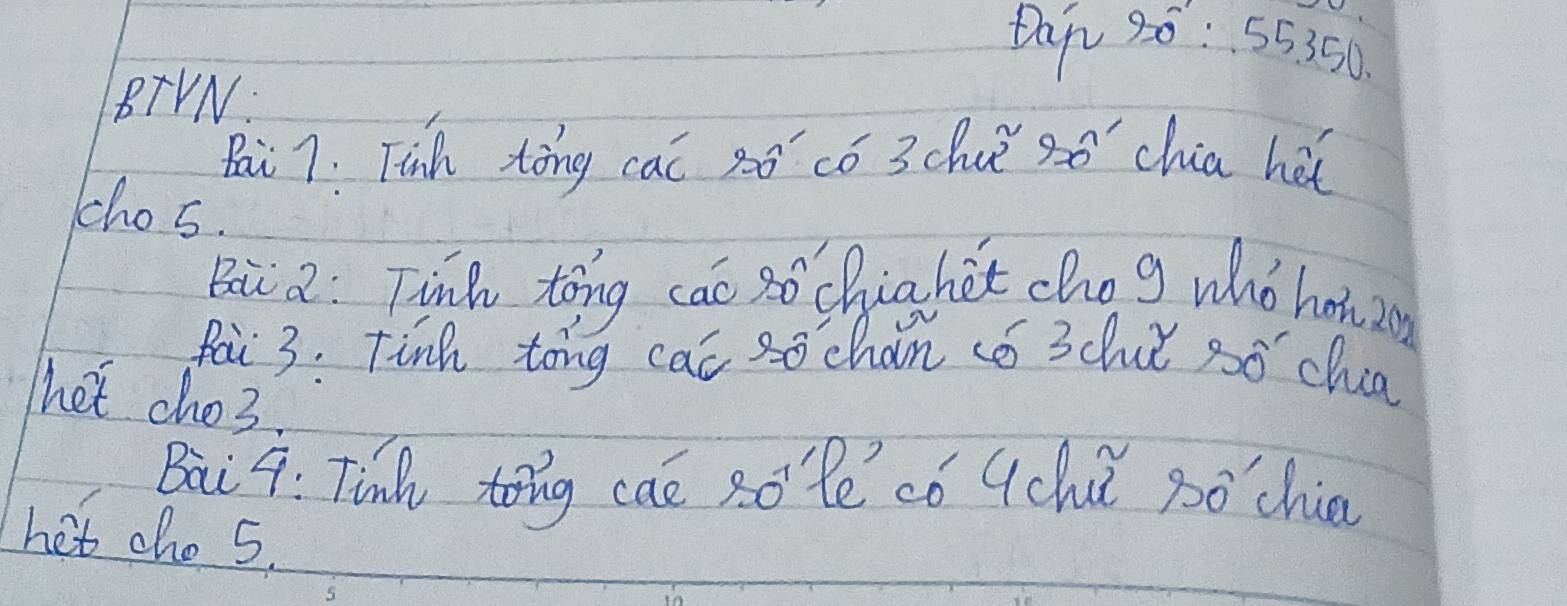 Đáp số: 55350.
BTVN:
Bài 1: Tính tổng các số có 3 chữ số chia hết
cho 5.
Bài 2: Tính tổng các số chia hết cho 9 nhỏ hơn
Bài 3: Tính tổng các số chẵn có 3 chữ số chia
hết cho 3.
Bài 4: Tính tổng các số lẻ có 4 chữ số chia
hết cho 5.
5 10